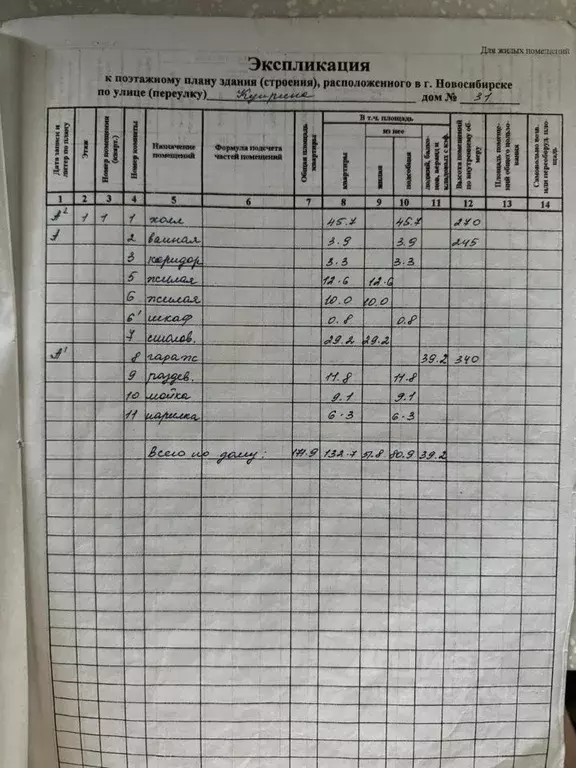 Для жилых помещений
Экспликация
к поэтажному плану здания (строения), расположенного в г. Новосибирске
по улице (переулку) Куприна дом № 31
Дата записи и литер по плану
Этаж
Номер помещения (кварт.)
Номер комнаты
Назначение помещений
Формула подсчета частей помещений
Общая площадь квартиры
В т.ч. площадь
из нее
квартиры
жилая
подсобная
лоджий, балконов, веранд и кладовых с коэф.
Высота помещений по внутреннему обмеру
Площадь помещений общего пользования
Самовольно возв. или переоборуд. площадь
1 2 3 4 5 6 7 8 9 10 11 12 13 14
А² 1 1 1 холл 45.7 45.7 270
А 2 ванная 3.9 3.9 245
3 коридор 3.3 3.3
5 жилая 12.6 12.6
6 жилая 10.0 10.0
6' шкаф 0.8 0.8
7 столов. 29.2 29.2
А¹ 8 гараж 39.2 340
9 раздев. 11.8 11.8
10 мойка 9.1 9.1
11 парилка 6.3 6.3
Всего по дому: 171.9 132.7 51.8 80.9 39.2